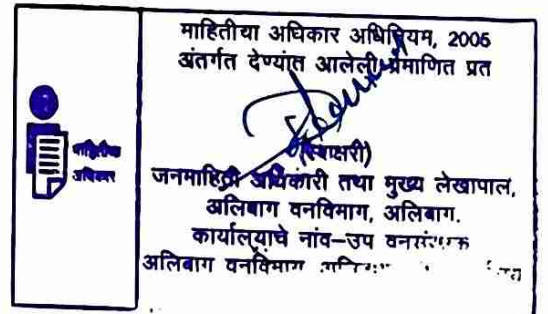 माहितीचा अधिकार अधिनियम, 2005
अंतर्गत देण्यांत आलेली प्रमाणित प्रत
(स्वाक्षरी)
माहितीचा
अधिकार
जनमाहिती अधिकारी तथा मुख्य लेखापाल,
अलिबाग वनविभाग, अलिबाग.
कार्यालयाचे नांव-उप वनसंरक्षक
अलिबाग वनविभाग